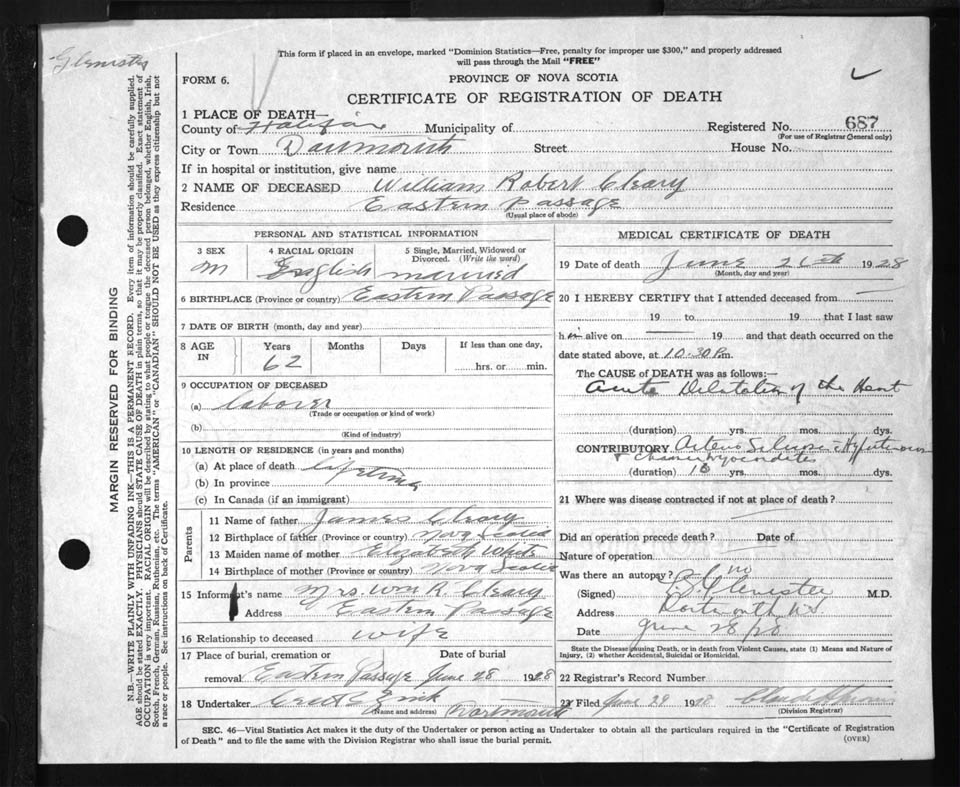 Glenister
This form if placed in an envelope, marked "Dominion Statistics—Free, penalty for improper use $300," and properly addressed
will pass through the Mail "FREE"
FORM 6.
PROVINCE OF NOVA SCOTIA
CERTIFICATE OF REGISTRATION OF DEATH
1 PLACE OF DEATH—
County of Halifax Municipality of Registered No. 687
(For use of Registrar General only)
City or Town Dartmouth Street House No.
If in hospital or institution, give name
2 NAME OF DECEASED William Robert Cleary
Residence Eastern Passage
(Usual place of abode)
PERSONAL AND STATISTICAL INFORMATION
3 SEX 4 RACIAL ORIGIN 5 Single, Married, Widowed or
Divorced. (Write the word)
M English married
6 BIRTHPLACE (Province or country) Eastern Passage
7 DATE OF BIRTH (month, day and year)
8 AGE IN Years Months Days If less than one day,
62 hrs. or min.
9 OCCUPATION OF DECEASED
(a) laborer
(Trade or occupation or kind of work)
(b)
(Kind of industry)
10 LENGTH OF RESIDENCE (in years and months)
(a) At place of death lifetime
(b) In province
(c) In Canada (if an immigrant)
Parents
11 Name of father James Cleary
12 Birthplace of father (Province or country) Nova Scotia
13 Maiden name of mother Elizabeth White
14 Birthplace of mother (Province or country) Nova Scotia
15 Informant's name Mrs. Wm R. Cleary
Address Eastern Passage
16 Relationship to deceased wife
17 Place of burial, cremation or Date of burial
removal Eastern Passage June 28 1928
18 Undertaker Zink
(Name and address) Dartmouth
MEDICAL CERTIFICATE OF DEATH
19 Date of death June 26th 1928
(Month, day and year)
20 I HEREBY CERTIFY that I attended deceased from
19 to 19 that I last saw
him alive on 19 and that death occurred on the
date stated above, at 10.30 Pm.
The CAUSE of DEATH was as follows:—
Acute Dilatation of the Heart
(duration) yrs. mos. dys.
CONTRIBUTORY
Chronic Myocarditis
(duration) 10 yrs. mos. dys.
21 Where was disease contracted if not at place of death?
Did an operation precede death? Date of
Nature of operation
Was there an autopsy? no
(Signed) Glenister M.D.
Address Dartmouth NS
Date June 28/28
State the Disease causing Death, or in death from Violent Causes, state (1) Means and Nature of
Injury, (2) whether Accidental, Suicidal or Homicidal.
22 Registrar's Record Number
23 Filed June 29 1928
(Division Registrar)
SEC. 46—Vital Statistics Act makes it the duty of the Undertaker or person acting as Undertaker to obtain all the particulars required in the "Certificate of Registration
of Death" and to file the same with the Division Registrar who shall issue the burial permit.
(OVER)
MARGIN RESERVED FOR BINDING
N.B.—WRITE PLAINLY WITH UNFADING INK—THIS IS A PERMANENT RECORD. Every item of information should be carefully supplied.
AGE should be stated EXACTLY. PHYSICIANS should STATE CAUSE OF DEATH in plain terms, so that it may be properly classified. Exact statement of
OCCUPATION is very important. RACIAL ORIGIN will be described by stating to what people or tongue the deceased person belonged, whether English, Irish,
Scotch, French, German, Russian, Ruthenian, etc. The terms "AMERICAN" or "CANADIAN" SHOULD NOT BE USED as they express citizenship but not
a race or people. See instructions on back of Certificate.